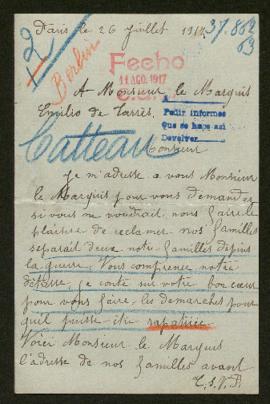 Paris le 26 Juillet 1917
37.862
63
2
Berlin
Fecho
11 AGO. 1917
A Monsieur le Marquis
Emilio de Torrès,
Pedir informes
Que se haga así
Devolver
Catteau
Monsieur
je m'adresse a vous Monsieur
le Marquis pour vous demander
si vous ne voudrait nous faire le
plaisir de reclamer nos familles
separait deux notre familles depuis
la guerre. Vous comprenez notre
je conte sur votre bon cœur
pour vous faire le demarches pour
quil puisse être rapatriée
Voici Monsieur le Marquis
l'adresse de nos familles avant
T.S.V.P.